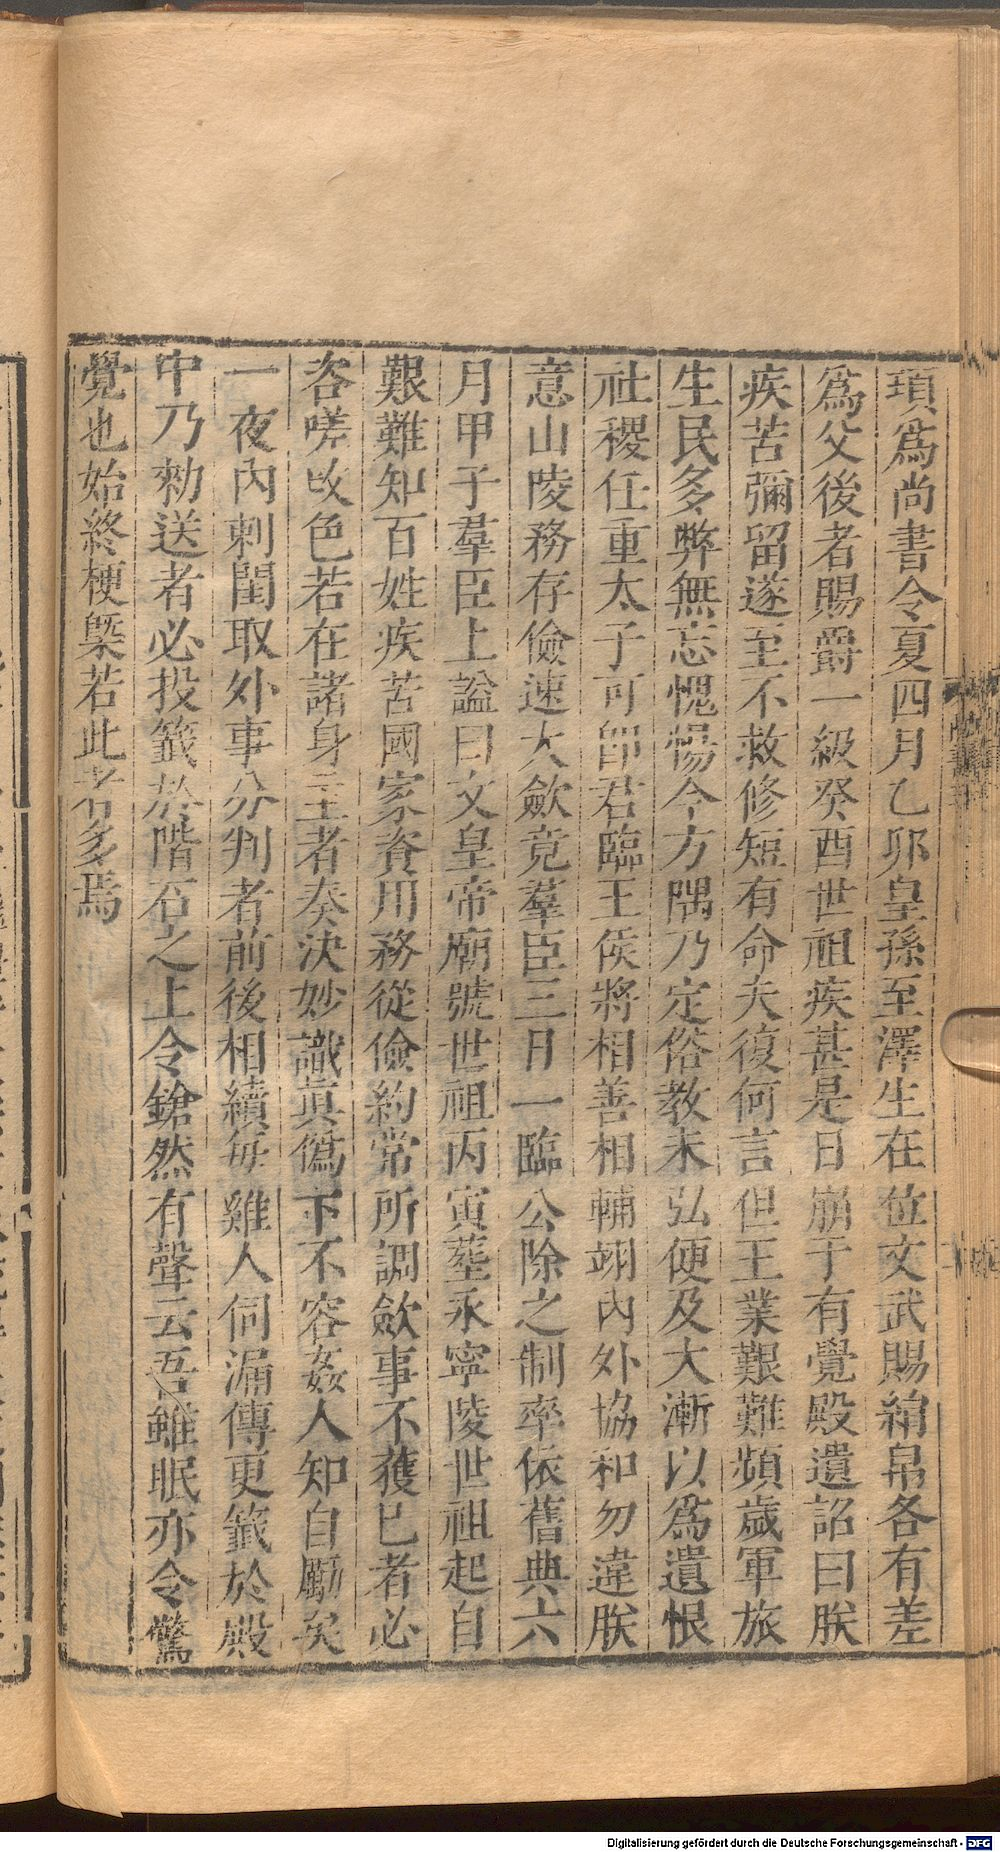 頊爲尚書令夏四月乙卯皇孫至澤生在位文武賜絹帛各有差
爲父後者賜爵一級癸酉世祖疾甚是日崩于有覺殿遺詔曰朕
疾苦彌留遂至不救修短有命夫復何言但王業艱難頻歲軍旅
生民多弊無忘愧惕今方隅乃定俗教未弘便及大漸以爲遺恨
社稷任重太子可卽君臨王侯將相善相輔翊內外協和勿違朕
意山陵務存儉速大歛竟羣臣三日一臨公除之制率依舊典六
月甲子羣臣上謚曰文皇帝廟號世祖丙寅葬永寧陵世祖起自
艱難知百姓疾苦國家資用務從儉約常所調歛事不獲巳者必
咨嗟改色若在諸身主者奏決妙識眞僞下不容姦人知自勵矣
一夜內刺閨取外事分判者前後相續每雞人伺漏傳更籖於殿
中乃勑送者必投籖於階石之上令鎗然有聲云吾雖眠亦令驚
覺也始終梗槩若此者多焉
Digitalisierung gefördert durch die Deutsche Forschungsgemeinschaft - DFG